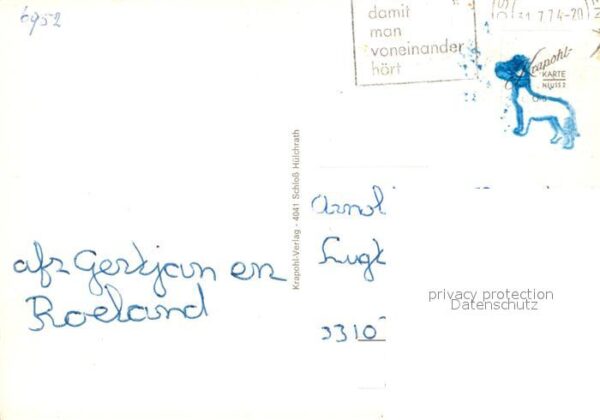 6952
damit
man
voneinander
hört
31.7.74-20
Krapohl-
KARTE
Krapohl-Verlag - 4041 Schloß Hülchrath
Arnol
Lugt
afz Gertjan en
Roeland
3310
privacy protection
Datenschutz